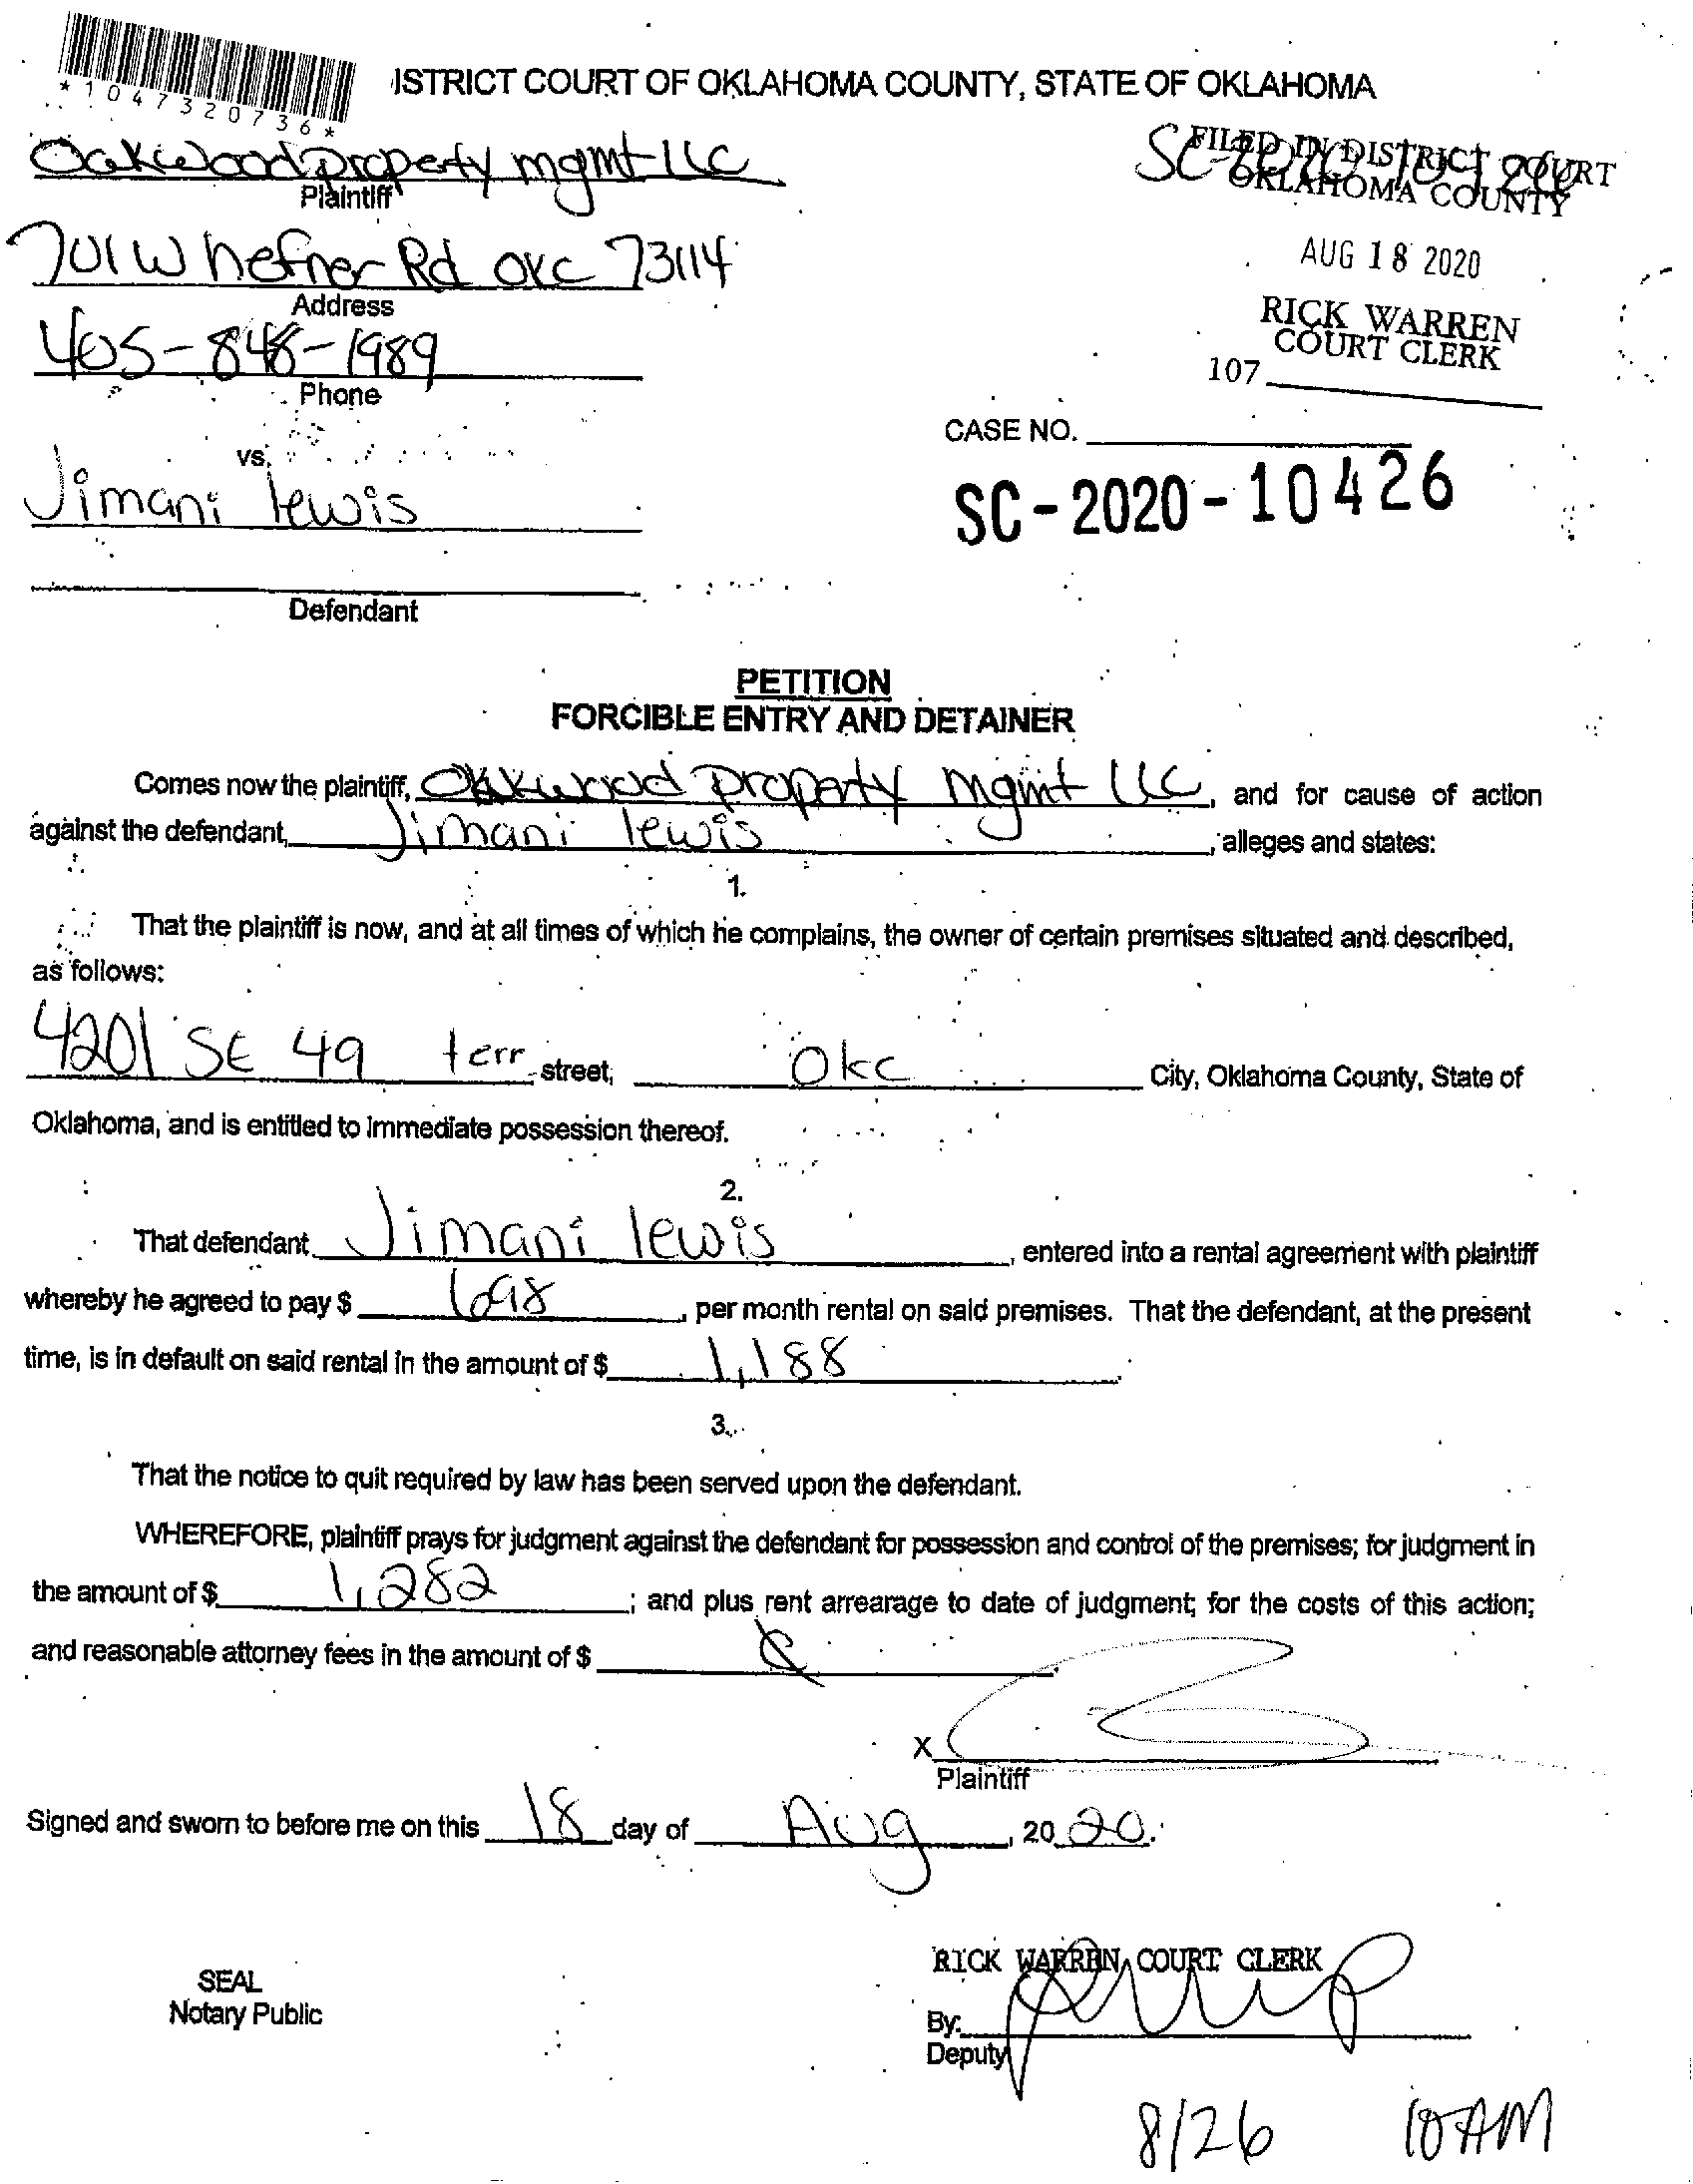 *1047320736*
ISTRICT COURT OF OKLAHOMA COUNTY, STATE OF OKLAHOMA
Oakwood property mgmt llc
Plaintiff
FILED IN DISTRICT COURT
OKLAHOMA COUNTY
701 W hefner Rd OKC 73114
Address
AUG 18 2020
405-848-1989
Phone
RICK WARREN
COURT CLERK
107
CASE NO.
vs.
Jimani lewis
SC-2020-10426
Defendant
PETITION
FORCIBLE ENTRY AND DETAINER
Comes now the plaintiff, Oakwood property mgmt llc, and for cause of action
against the defendant, Jimani lewis, alleges and states:
1.
That the plaintiff is now, and at all times of which he complains, the owner of certain premises situated and described,
as follows:
4201 SE 49 terr street; Okc City, Oklahoma County, State of
Oklahoma, and is entitled to immediate possession thereof.
2.
That defendant Jimani lewis, entered into a rental agreement with plaintiff
whereby he agreed to pay $ 698, per month rental on said premises. That the defendant, at the present
time, is in default on said rental in the amount of $ 1,188
3.
That the notice to quit required by law has been served upon the defendant.
WHEREFORE, plaintiff prays for judgment against the defendant for possession and control of the premises; for judgment in
the amount of $ 1,282; and plus rent arrearage to date of judgment; for the costs of this action;
and reasonable attorney fees in the amount of $
X
Plaintiff
Signed and sworn to before me on this 18 day of Aug, 2020.
RICK WARREN, COURT CLERK
SEAL
Notary Public
By:
Deputy
8/26 10 AM